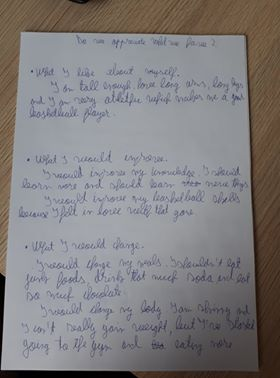 Do we appreciate what we have?
• What I like about myself.
I am tall enough, have long arms, long legs
and I am very athletic which makes me a good
basketball player.
• What I would improve.
I would improve my knowledge. I should
learn more and should learn new things
I would improve my basketball skills
because I fell in love with that game.
• What I would change.
I would change my meals. I shouldn't eat
junk foods, drink that much soda and eat
so much chocolate.
I would change my body. I am skinny and
I can't really gain weight, but I've started
going to the gym and eating more